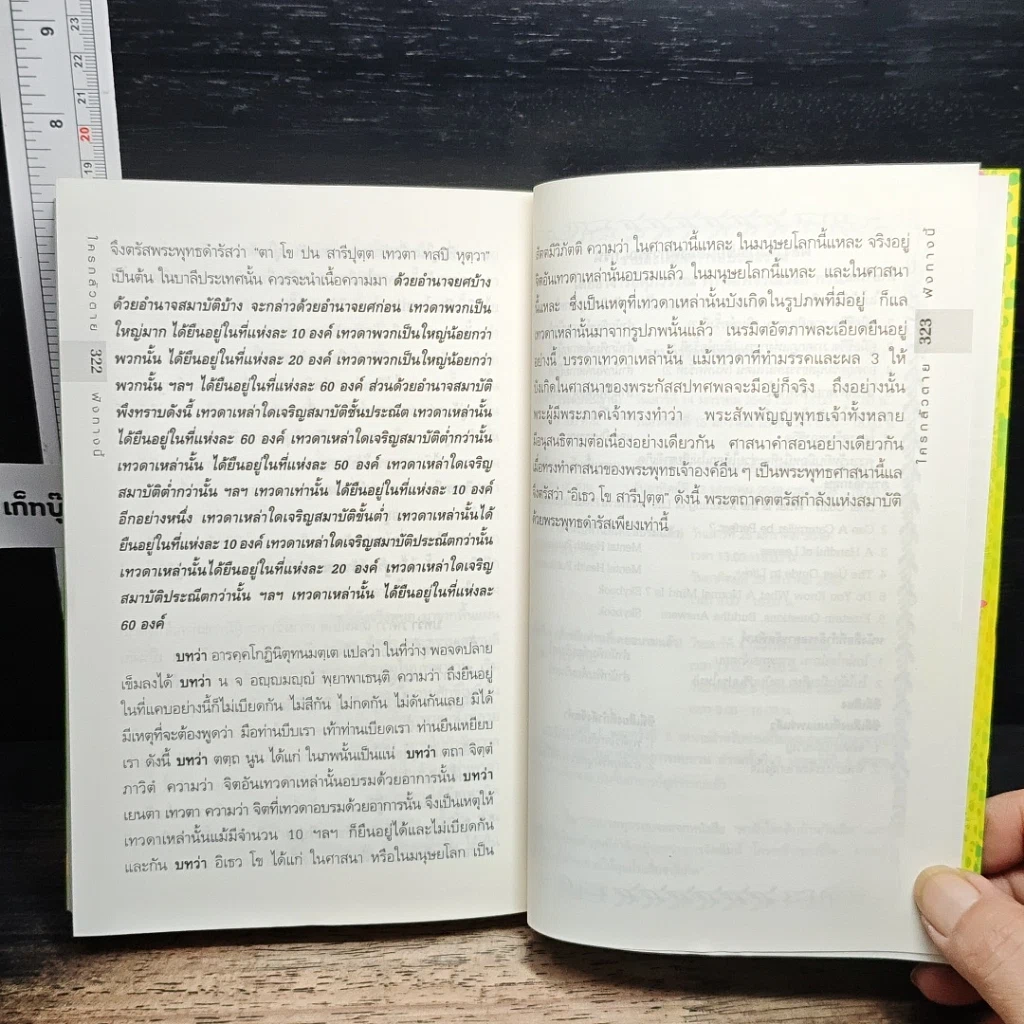 จึงตรัสพระพุทธดำรัสว่า "ตา โข ปน สารีปุตฺต เทวตา ทสปิ หุตฺวา"
เป็นต้น ในบาลีประเทศนั้น ควรจะนำเนื้อความมา ด้วยอำนาจยศบ้าง
ด้วยอำนาจสมาบัติบ้าง จะกล่าวด้วยอำนาจยศก่อน เทวดาพวกเป็น
ใหญ่มาก ได้ยืนอยู่ในที่แห่งละ 10 องค์ เทวดาพวกเป็นใหญ่น้อยกว่า
พวกนั้น ได้ยืนอยู่ในที่แห่งละ 20 องค์ เทวดาพวกเป็นใหญ่น้อยกว่า
พวกนั้น ฯลฯ ได้ยืนอยู่ในที่แห่งละ 60 องค์ ส่วนด้วยอำนาจสมาบัติ
พึงทราบดังนี้ เทวดาเหล่าใดเจริญสมาบัติชั้นประณีต เทวดาเหล่านั้น
ได้ยืนอยู่ในที่แห่งละ 60 องค์ เทวดาเหล่าใดเจริญสมาบัติต่ำกว่านั้น
เทวดาเหล่านั้น ได้ยืนอยู่ในที่แห่งละ 50 องค์ เทวดาเหล่าใดเจริญ
สมาบัติต่ำกว่านั้น ฯลฯ เทวดาเท่านั้น ได้ยืนอยู่ในที่แห่งละ 10 องค์
อีกอย่างหนึ่ง เทวดาเหล่าใดเจริญสมาบัติขั้นต่ำ เทวดาเหล่านั้นได้
ยืนอยู่ในที่แห่งละ 10 องค์ เทวดาเหล่าใดเจริญสมาบัติประณีตกว่านั้น
เทวดาเหล่านั้นได้ยืนอยู่ในที่แห่งละ 20 องค์ เทวดาเหล่าใดเจริญ
สมาบัติประณีตกว่านั้น ฯลฯ เทวดาเหล่านั้น ได้ยืนอยู่ในที่แห่งละ
60 องค์
บทว่า อารคฺคโกฏินิตุทนมตฺเต แปลว่า ในที่ว่าง พอจดปลาย
เข็มลงได้ บทว่า น จ อญฺญมญฺญํ พฺยาพาเธนฺติ ความว่า ถึงยืนอยู่
ในที่แคบอย่างนี้ก็ไม่เบียดกัน ไม่สีกัน ไม่กดกัน ไม่ดันกันเลย มิได้
มีเหตุที่จะต้องพูดว่า มือท่านบีบเรา เท้าท่านเบียดเรา ท่านยืนเหยียบ
เรา ดังนี้ บทว่า ตตฺถ นูน ได้แก่ ในภพนั้นเป็นแน่ บทว่า ตถา จิตฺตํ
ภาวิตํ ความว่า จิตอันเทวดาเหล่านั้นอบรมด้วยอาการนั้น บทว่า
เยนตา เทวตา ความว่า จิตที่เทวดาอบรมด้วยอาการนั้น จึงเป็นเหตุให้
เทวดาเหล่านั้นแม้มีจำนวน 10 ฯลฯ ก็ยืนอยู่ได้และไม่เบียดกัน
และกัน บทว่า อิเธว โข ได้แก่ ในศาสนา หรือในมนุษยโลก เป็น
ใครกลัวตาย 322 ฟังทางนี้
สัตตมีวิภัตติ ความว่า ในศาสนานี้แหละ ในมนุษยโลกนี้แหละ จริงอยู่
จิตอันเทวดาเหล่านั้นอบรมแล้ว ในมนุษยโลกนี้แหละ และในศาสนา
นี้แหละ ซึ่งเป็นเหตุที่เทวดาเหล่านั้นบังเกิดในรูปภพที่มีอยู่ ก็แล
เทวดาเหล่านั้นมาจากรูปภพนั้นแล้ว เนรมิตอัตภาพละเอียดยืนอยู่
อย่างนี้ บรรดาเทวดาเหล่านั้น แม้เทวดาที่ทำมรรคและผล 3 ให้
บังเกิดในศาสนาของพระกัสสปทศพลจะมีอยู่ก็จริง ถึงอย่างนั้น
พระผู้มีพระภาคเจ้าทรงทำว่า พระสัพพัญญูพุทธเจ้าทั้งหลาย
มีอนุสนธิตามต่อเนื่องอย่างเดียวกัน ศาสนาคำสอนอย่างเดียวกัน
เมื่อทรงทำศาสนาของพระพุทธเจ้าองค์อื่น ๆ เป็นพระพุทธศาสนานี้แล
จึงตรัสว่า "อิเธว โข สารีปุตฺต" ดังนี้ พระตถาคตตรัสกำลังแห่งสมาบัติ
ด้วยพระพุทธดำรัสเพียงเท่านี้
ใครกลัวตาย 323 ฟังทางนี้
เก็ทบุ๊
9
8
23
22
21
20
19